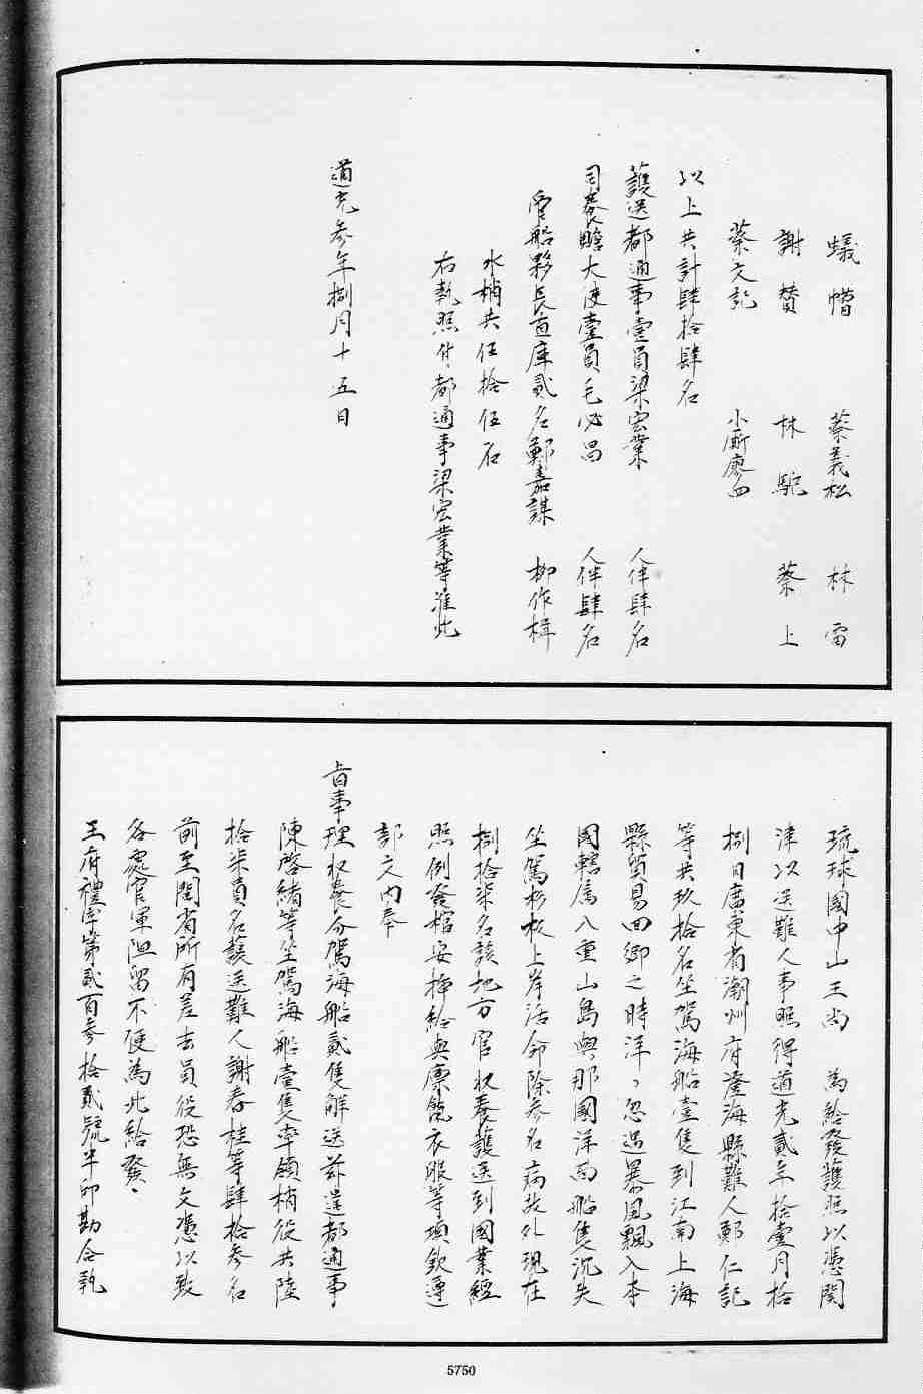 蟻 懵 蔡義松 林 雷
謝 贊 林 駝 蔡 上
蔡文記 小厮廖四
以上共計肆拾肆名
護送都通事壹員梁宏業 人伴肆名
司養贍大使壹員毛必昌 人伴肆名
管船夥長直庫貳名鄭嘉謀 柳作楫
水梢共伍拾伍名
右執照付都通事梁宏業等准此
道光參年捌月十五日
琉球國中山王尚 為給發護照以憑關
津以送難人事照得道光貳年拾壹月拾
捌日廣東省潮州府澄海縣難人鄭仁記
等共玖拾名坐駕海船壹隻到江南上海
縣貿易回鄉之時洋々忽遇暴風飄入本
國轄属八重山島與那國洋面船隻沉失
坐駕杉板上岸活命除參名病故外現在
捌拾柒名該地方官收養護送到國業經
照例發棺安揷給與廪餼衣服等項欽遵
部文內奉
旨事理收養分駕海船貳隻解送茲遣都通事
陳啓緒等坐駕海船壹隻率領梢役共陸
拾柒員名護送難人謝春桂等肆拾參名
前至閩省所有差去員役恐無文憑以致
各處官軍阻留不便為此給發
王府禮字第貳百參拾貳號半印勘合執
5750